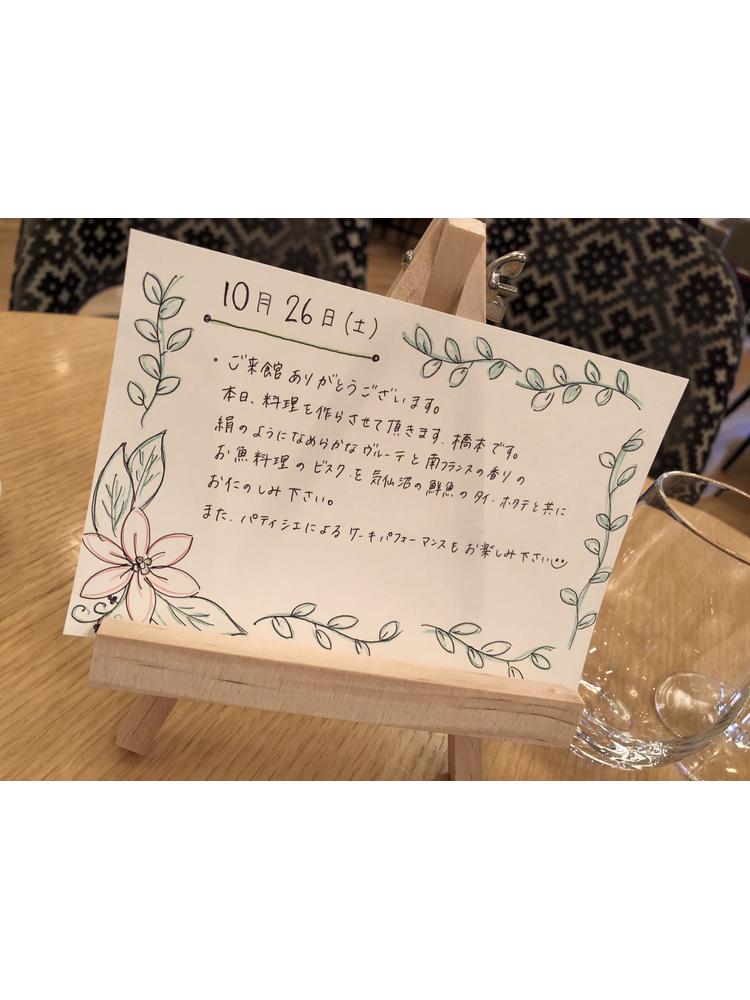 10月 26日(土)
・ご来館ありがとうございます。
本日、料理を作らさせて頂きます、橋本です。
絹のようになめらかなヴルーテと南フランスの香りの
お魚料理のビスクを気仙沼の鮮魚のタイ・ホタテと共に
お仁のしみ下さい。
また、パティシエによるケーキパフォーマンスもお楽しみ下さい